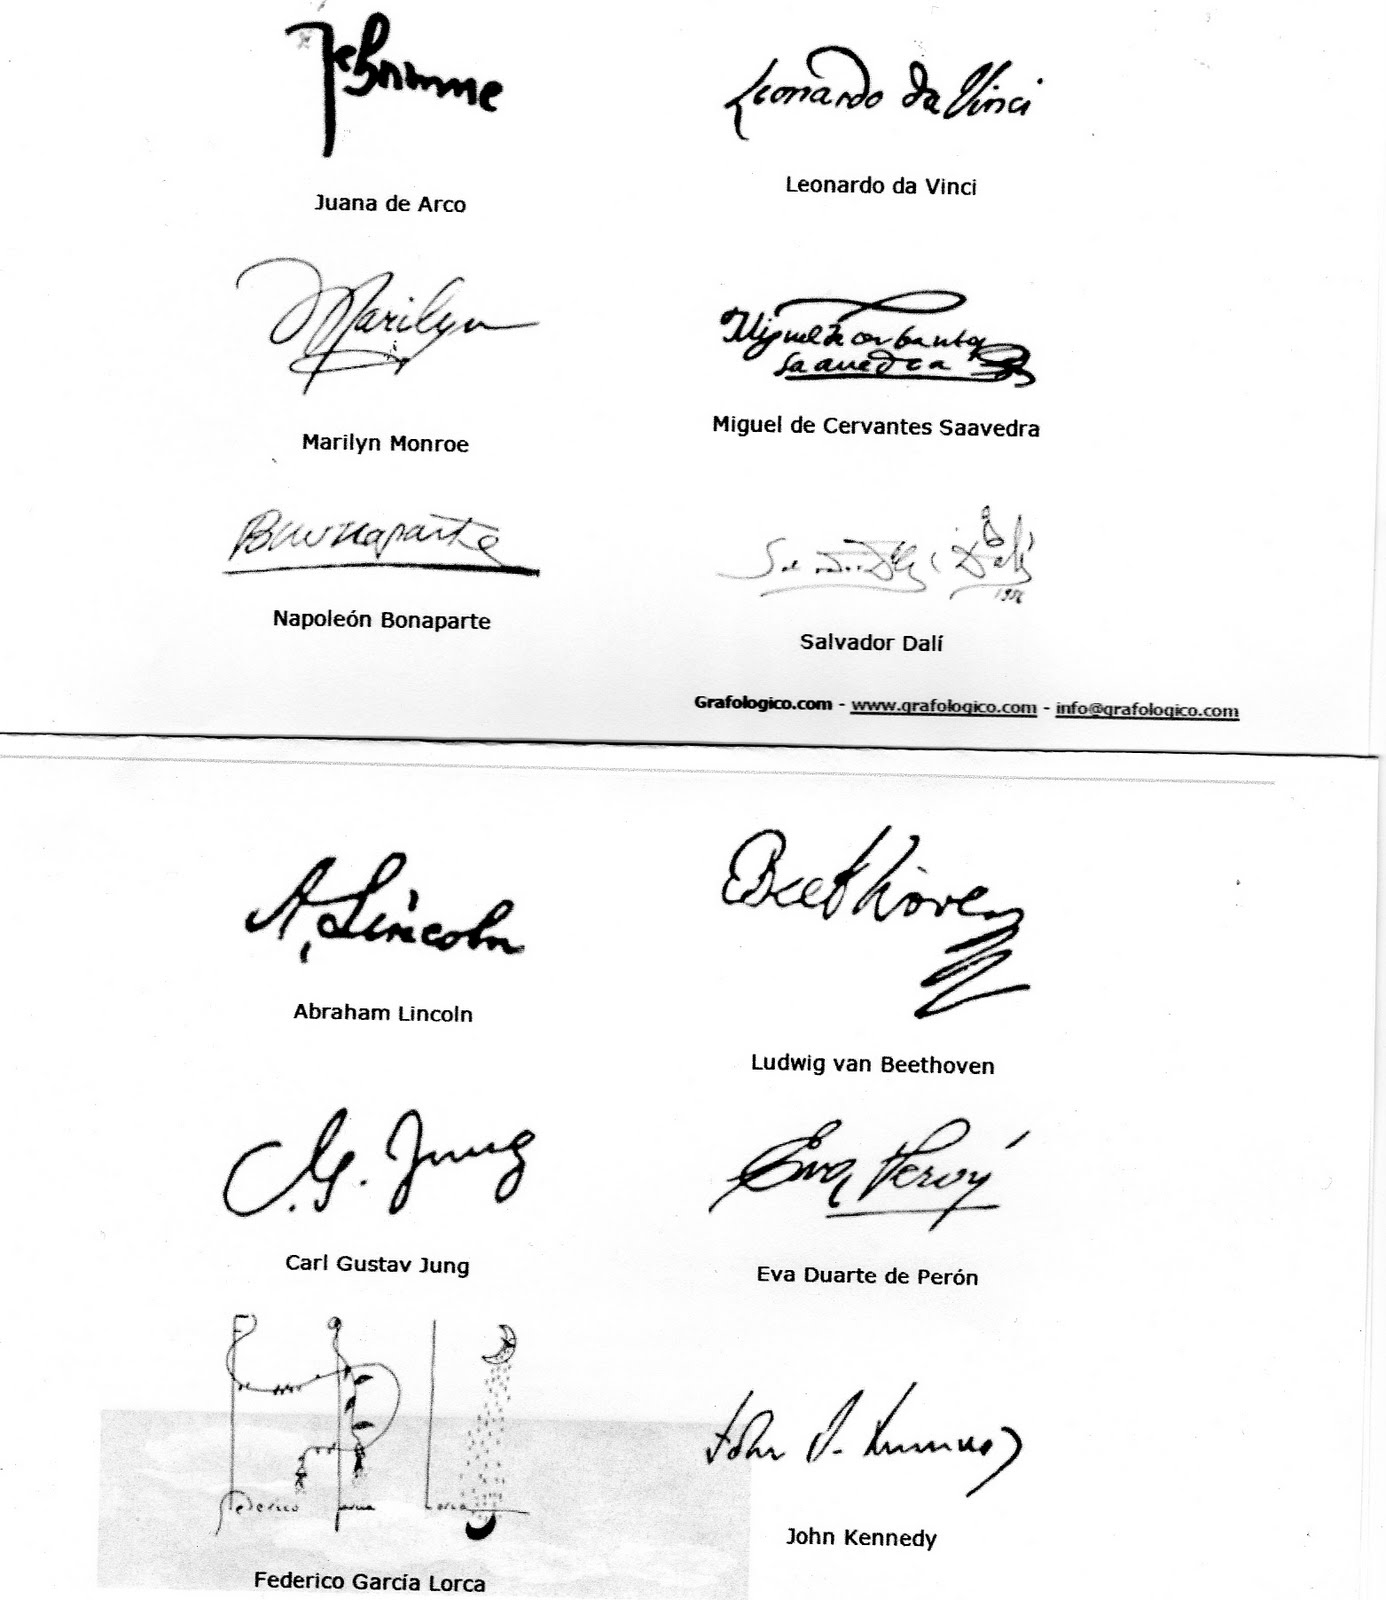 Jehanne
Leonardo da Vinci
Juana de Arco
Leonardo da Vinci
Marilyn
Miguel de cerbantes
saavedra
Marilyn Monroe
Miguel de Cervantes Saavedra
Buonaparte
Dalí
Napoleón Bonaparte
Salvador Dalí
Grafologico.com - www.grafologico.com - info@grafologico.com
A. Lincoln
Beethoven
Abraham Lincoln
Ludwig van Beethoven
C. G. Jung
Eva Perón
Carl Gustav Jung
Eva Duarte de Perón
F G L
Federico García Lorca
John F. Kennedy
Federico García Lorca
John Kennedy